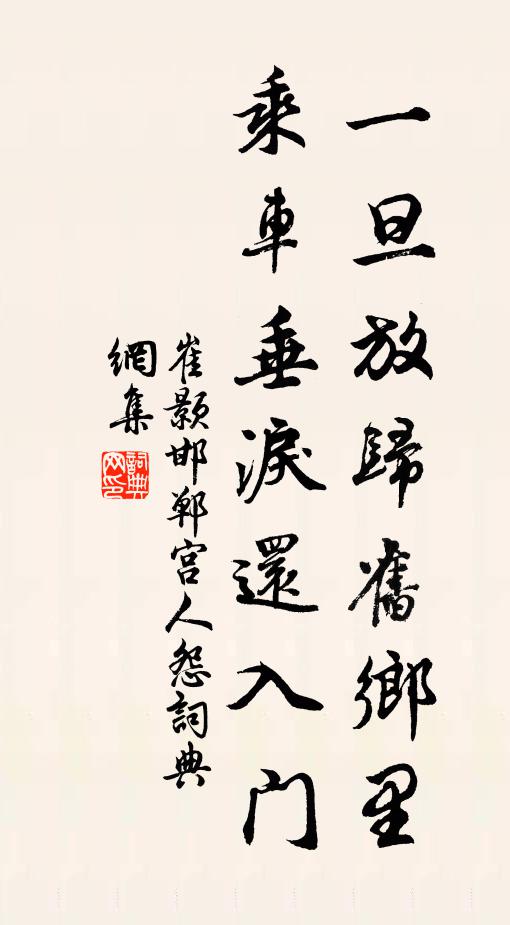 一旦放歸舊鄉里
乘車垂淚還入门
崔顥邯鄲宮人怨詞典
網集
詞典
网印